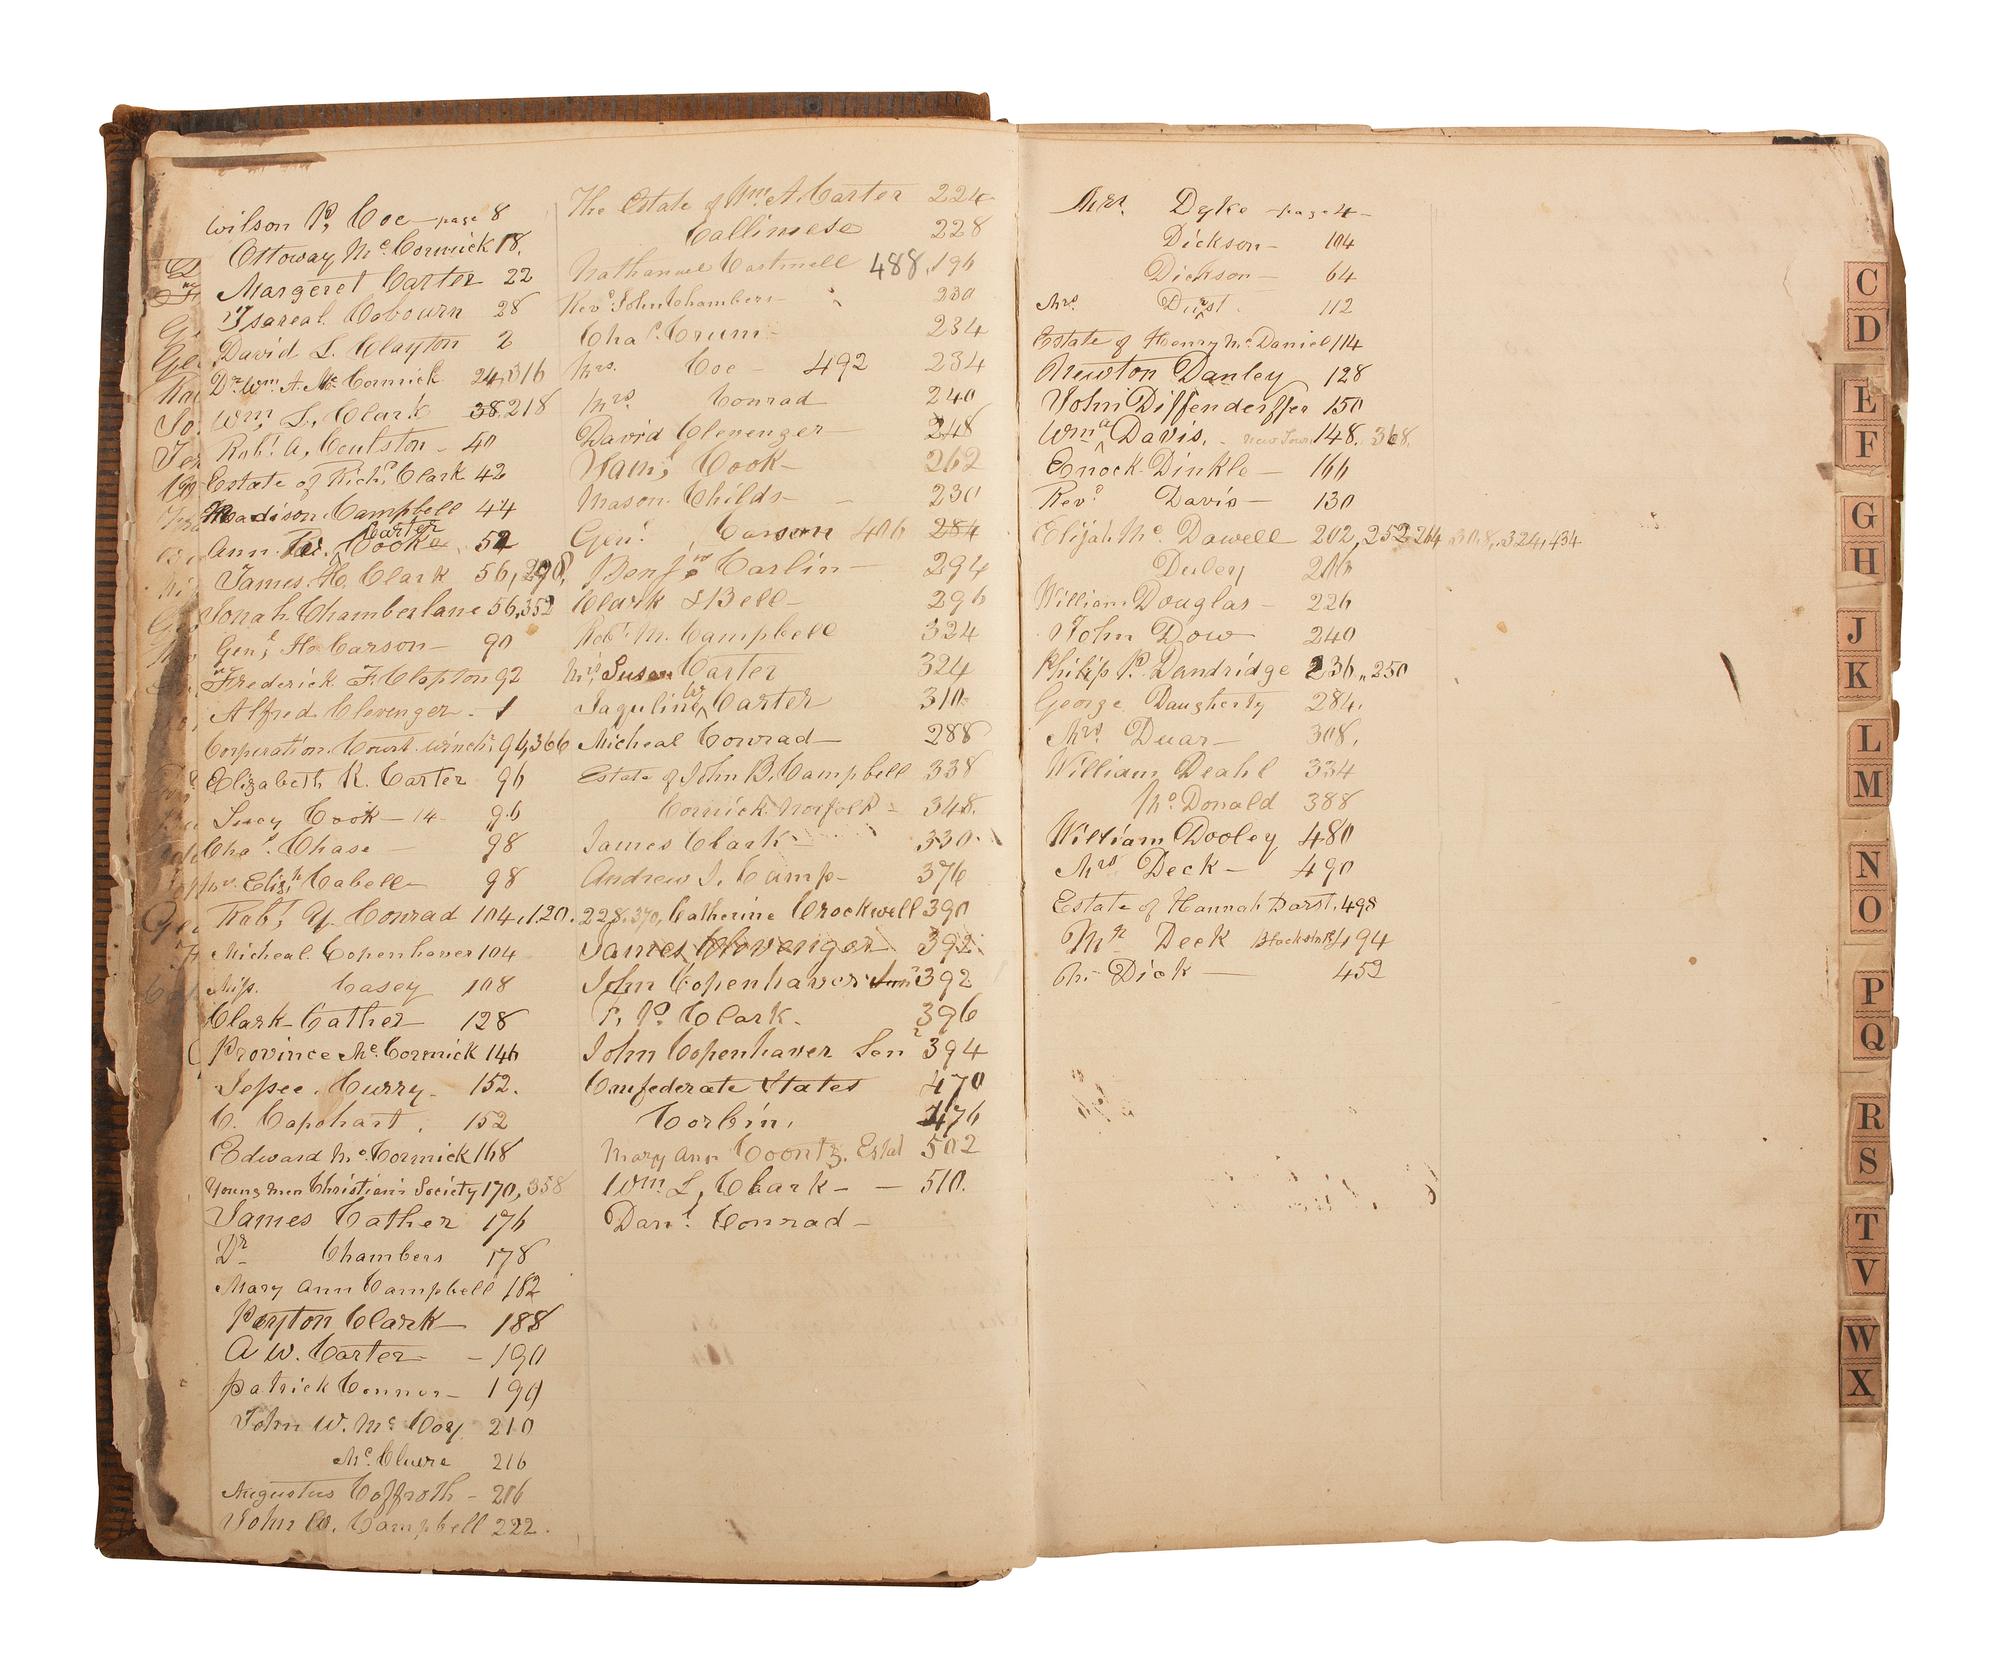 Wilson P. Coe - page 8
Ottoway Mc Cormick 18.
Margeret Carter 22
Isareal Cobourn 28
David L. Clayton 2
Dr. Wm. A. Mc Cormick 24, 316
Wm L. Clark 38. 218
Robt. A. Coulston - 40
Estate of Richd. Clark 42
Madison Campbell 44
Carter
Ann Cooke 52
James H. Clark 56, 290,
Jonah Chamberlane 56, 352
Genl. H. Carson - 90
Frederick F. Clopton 92
Alfred Clevenger - 1
Corporation Court winchr. 94, 366
Elizabeth K. Carter 96
Lucy Cook - 14 96
Chas. Chase - 98
Mrs. Elizh Cabell - 98
Robt. Y. Conrad 104, 120. 228. 370,
Micheal Copenhaver 104
Miss. Casey 108
Clark Cather - 128
Province Mc. Cormick 146
Jessee. Curry - 152.
C. Capohart. 152
Edward Mc. Cormick 168
Young men Christian's Society 170, 358
James Cather 176
Dr Chambers 178
Mary Ann Campbell 182
Peyton Clark - 188
A. W. Carter - - 190
Patrick Connor - 190
John W. Mc Coy 210
Mc. Cluere 216
Augustus Coffroth - 216
John W. Campbell 222.
The Estate of Wm. A. Carter 224
Callimese 228
Nathanuel Cartmell 488, 196
Revd. John Chambers - 230
Chas. Crum - 234
Mrs. Coe - 492 234
Mrs Conrad 240
David Clevenger - 248
Saml. Cook - 262
Mason. Childs - - 230
Genl. Carson 406 284
Benjn Carlin - 294
Clark & Bell - 296
Robt. M. Campbell 324
Mrs. Susan Carter 324
Jaquline W Carter 310.
Micheal Conrad - 288
Estate of John B. Campbell 338
Cornick Norfolk - 348.
James Clark - 330.
Andrew J. Camp - 376
Catherine Crockwell 390
James Clevenger 392.
John Copenhaver Junr 392
P. P. Clark. 396
John Copenhaver Senr 394
Confederate States 470
Corbin, 476
Mary Ann Coontz. Estat 502
Wm. L, Clark - - 510.
Danl. Conrad -
Mrs. Dyke - page 4 -
Dickson - 104
Dickson - 64
Mrs. Durst. 112
Estate of Henry Mc. Daniel 114
Newton Danley 128
John Diffenderffer 150
Wm. a Davis. - New Town 148. 368.
Enock Dinkle - 166
Revd. Davis - 130
Elijah Mc. Dowell 202, 252, 264, 308, 324, 434
Duley 216
William Douglas - 226
John Dow 240
Philip P. Dandridge 236, 250
George Daugherty 284.
Mrs. Duar - 308.
William Deahl 334
Mc. Donald 388
William Dooley 480
Mrs Deck - 490
Estate of Hannah Darst. 498
Mr Deck Blacksmith 494
Mr Dick - 452
C
D
E
F
G
H
J
K
L
M
N
O
P
Q
R
S
T
V
W
X